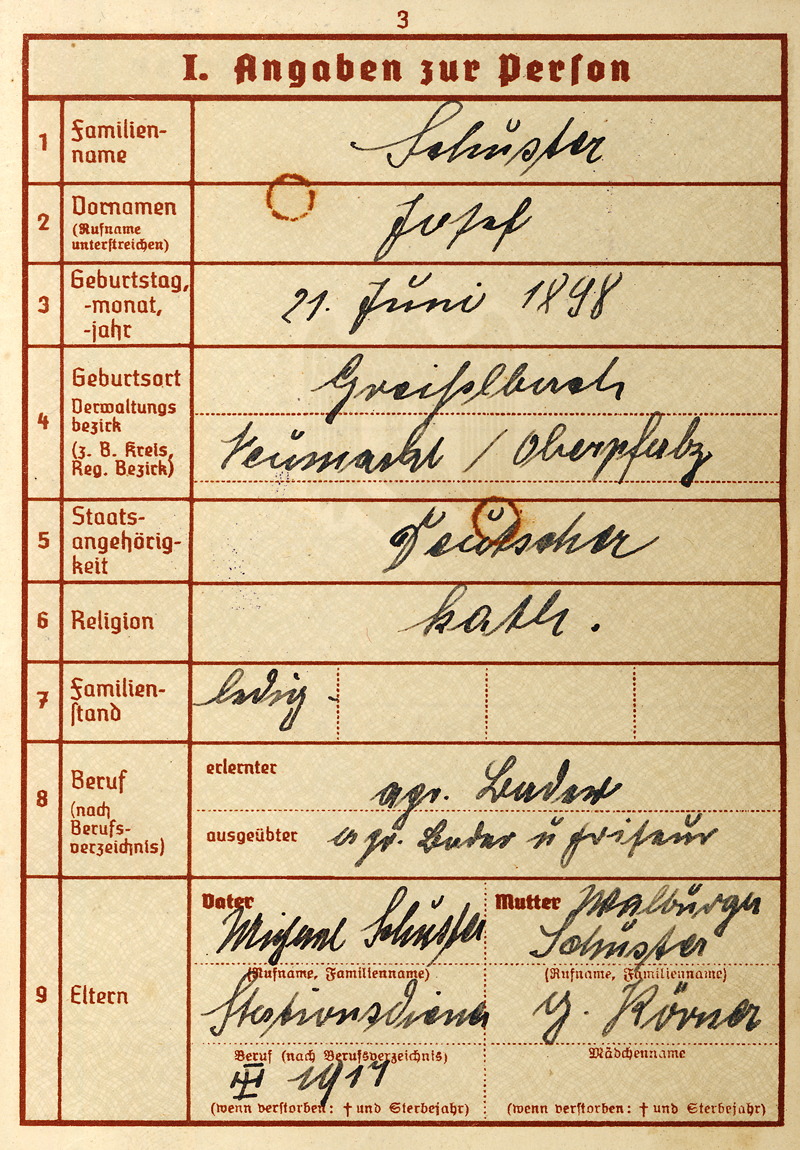 3
I. Angaben zur Person
1
Familien-
name
Schuster
2
Vornamen
(Rufname
unterstreichen)
Josef
3
Geburtstag,
-monat,
-jahr
21. Juni 1898
4
Geburtsort
Verwaltungs
bezirk
(z. B. Kreis,
Reg. Bezirk)
Greißlbach
Neumarkt / Oberpfalz
5
Staats-
angehörig-
keit
Deutscher
6
Religion
kath.
7
Familien-
stand
ledig
8
Beruf
(nach
Berufs-
verzeichnis)
erlernter
apr. Bader
ausgeübter
apr. Bader u Friseur
9
Eltern
Vater
Michael Schuster
(Rufname, Familienname)
Stationsdiener
Beruf (nach Berufsverzeichnis)
1917
(wenn verstorben: † und Sterbejahr)
Mutter
Walburga
Schuster
(Rufname, Familienname)
g. Körner
Mädchenname
(wenn verstorben: † und Sterbejahr)